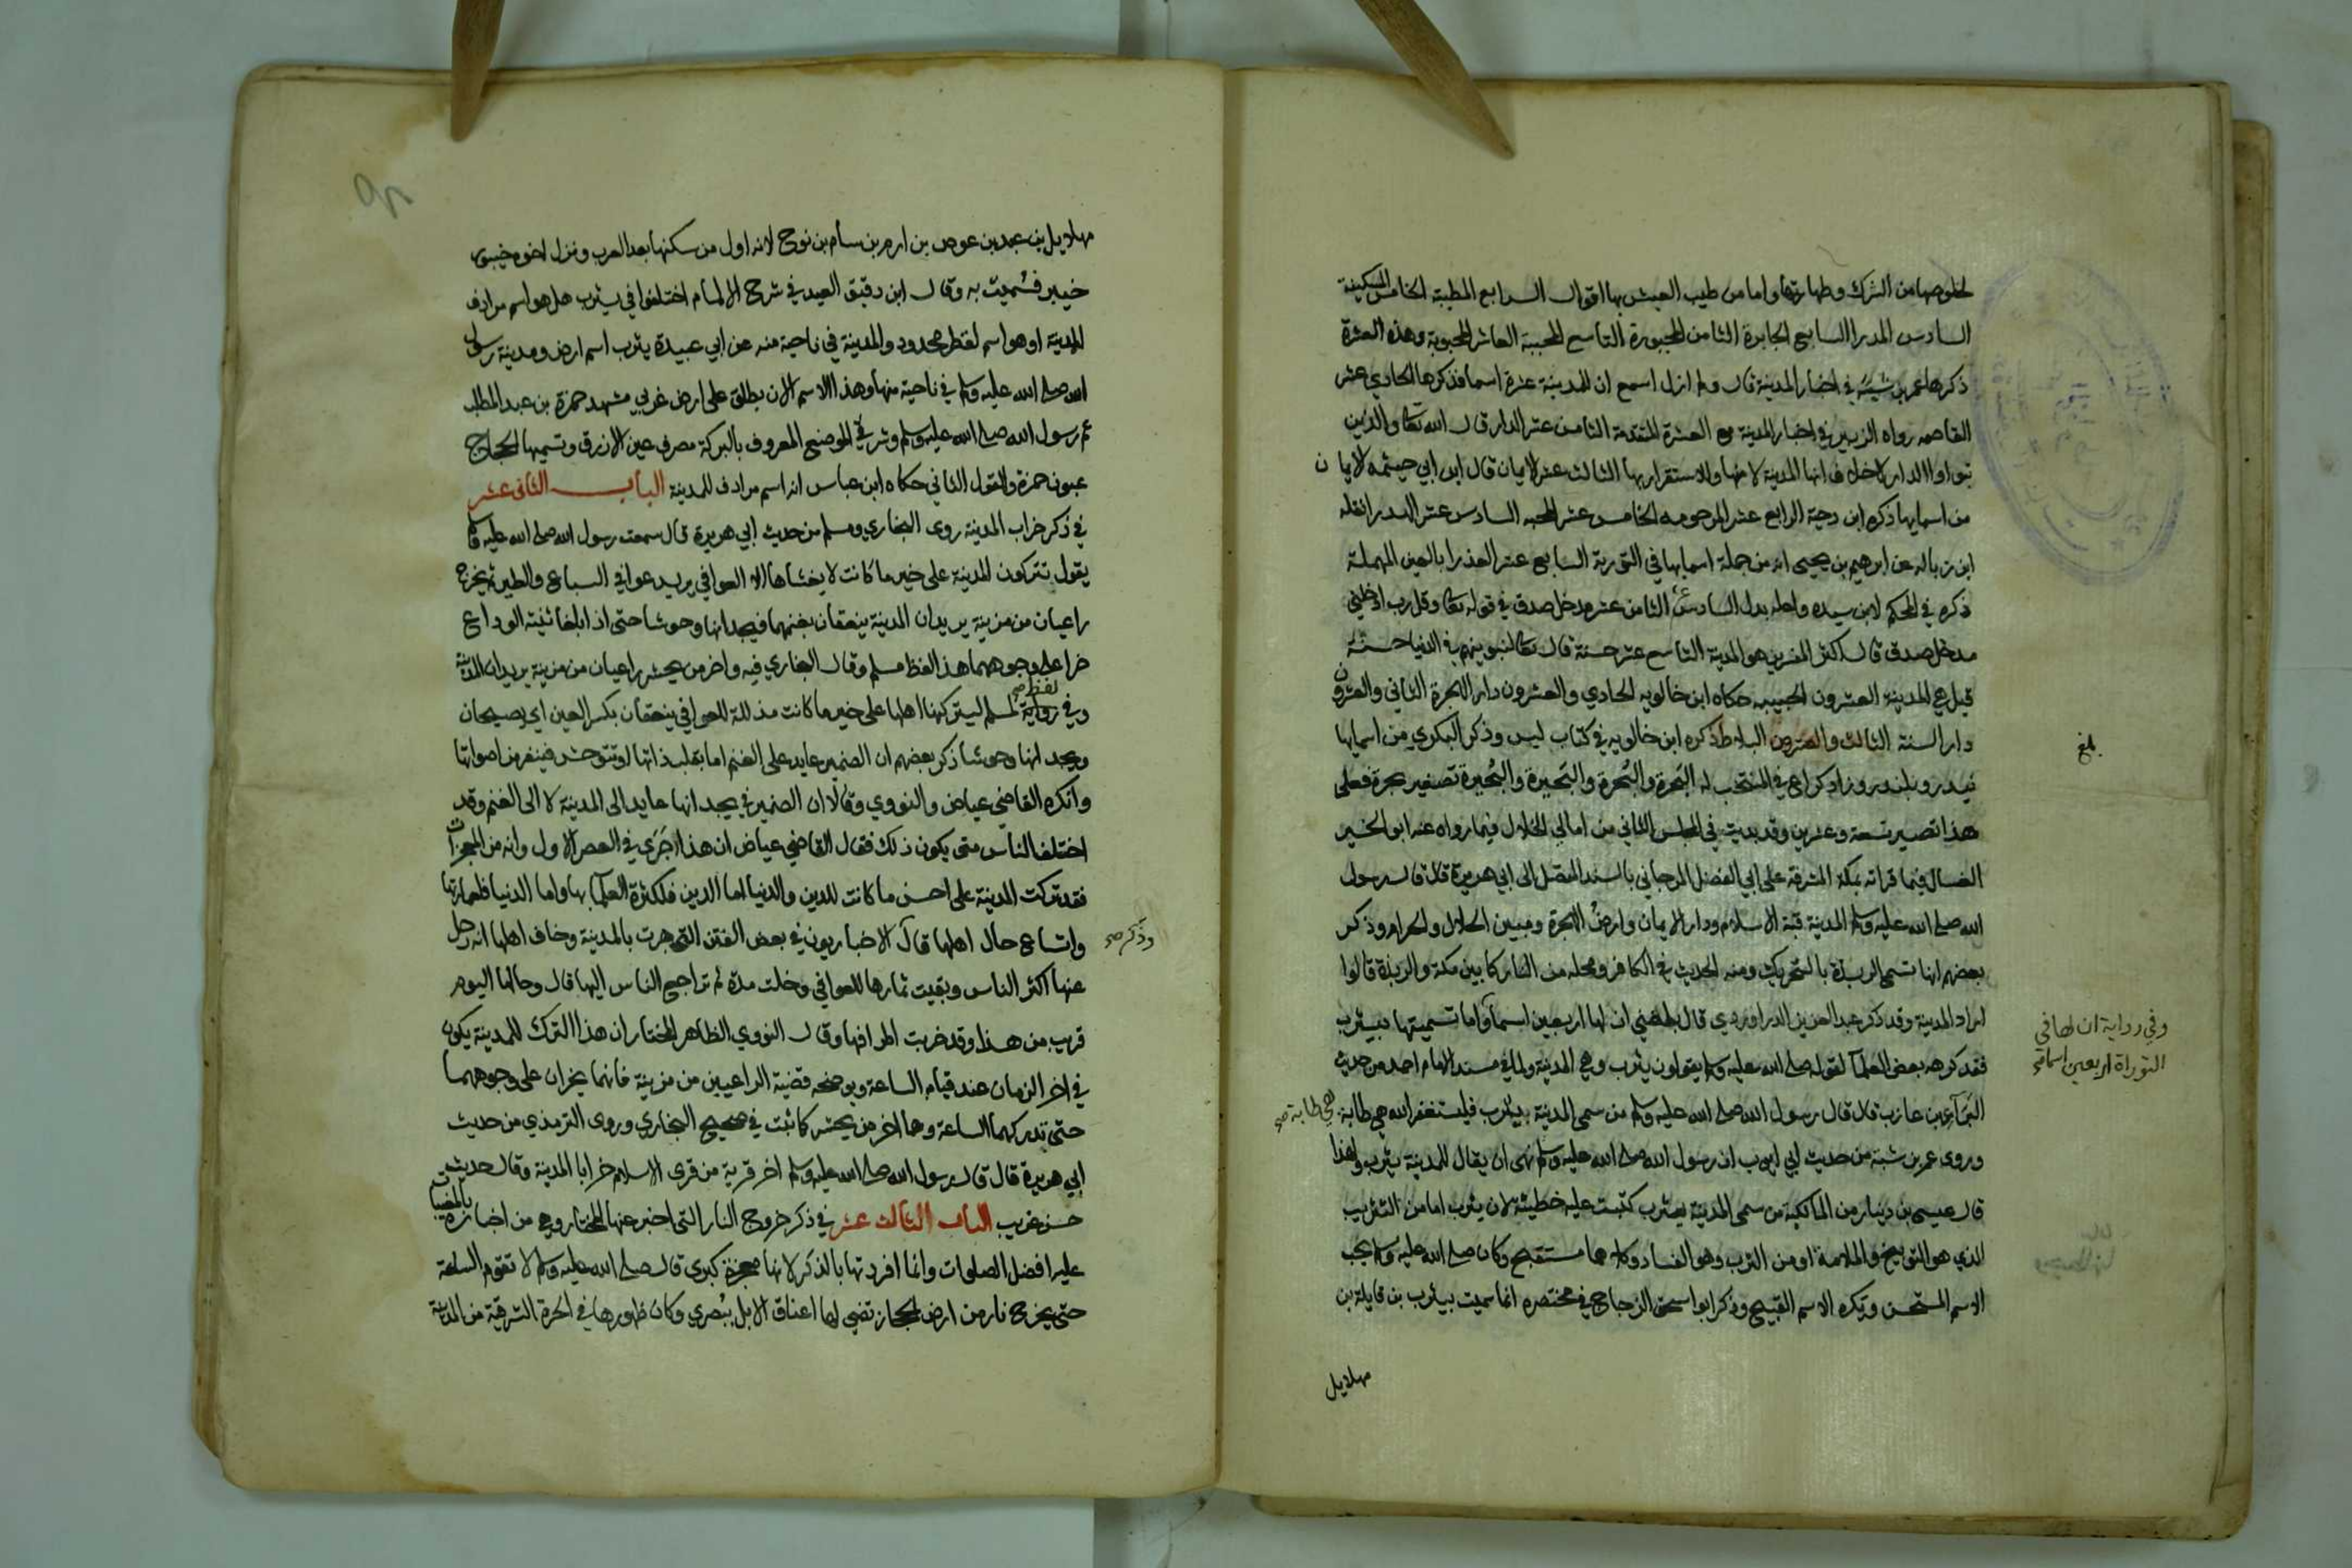 لخلوصها من الشرك وطهارتها واما من طيب العيش بها اقوال الرابع المطيبة الخامس المسكينة
السادس المدرا السابع الجابرة الثامن المجبورة التاسع المحببة العاشر المحبوبة وهذه العشرة
ذكرها عمر بن شبّه في اخبار المدينة قال ولم ازل اسمع ان للمدينة عشرة اسما فذكرها الحادي عشر
القاصمه رواه الزبير في اخبار المدينة مع العشرة المتقدمة الثامن عشر الدار قال الله تعا والذين
تبواوا الدار لا خلاف انها المدينة لامنها والاستقرار بها الثالث عشر الايمان قال ابن ابي حيثمه الايمان
من اسمايها ذكره ابن دحية الرابع عشر المرحومه الخامس عشر المحبه السادس عشر الندرا نقله
ابن زباله عن ابرهيم بن يحيى انه من جملة اسمايها في التورية السابع عشر العذرا بالعين المهملة
ذكره في المحكم لابن سيده ولعله بدل السادس عشر الثامن عشر مدخل صدق في قوله تعا وقل رب ادخلني
مدخل صدق قال اكثر المفسرين هو المدينة التاسع عشر حسنة قال تعا لنبوينهم في الدنيا حسنة
قيل هي المدينة العشرون الحبيبه حكاه ابن خالويه الحادي والعشرون دار الهجرة الثاني والعشرون
دار السنة الثالث والعشرون البلاط ذكره ابن خالويه في كتاب ليس وذكر البكري من اسمايها
تيدد ويندد وزاد كراع في المنتخب له البَحرة والبُحرة والبَحيرة والبُحيرة تصغير بحرة فعلى
هذا تصير تسعة وعشرين وقد بديت في المجلس الثاني من امالي الخلال فيما رواه عنه ابو الخير
الغسال فيما قراته بمكة المشرفة على ابي الفضل المرجاني بالسند المتصل الى ابي هريرة قال قال رسول
الله صلى الله عليه وسلم المدينة قبة الاسلام ودار الايمان وارض الهجرة ومبين الحلال والحرام وذكر
بعضهم انها تسمى الربذة بالتحريك ومنه الحديث في الكافر ومحله من النار كما بين مكة والربذة قالوا
اراد المدينة وقد ذكر عبد العزيز الدراوردي قال بلغني ان لها اربعين اسما واما تسميتها بيثرب
وفي رواية ان لها في
التوراة اربعين اسما صح
فقد كرهه بعض العلما لقوله صلى الله عليه وسلم يقولون يثرب وهي المدينة ولما في مسند الامام احمد من حديث
البرآء بن عازب قال قال رسول الله صلى الله عليه وسلم من سمى المدينة بيثرب فليستغفر الله هي طابة
هي طابة صح
وروى عمر بن شبة من حديث ابي ايوب ان رسول الله صلى الله عليه وسلم نهى ان يقال للمدينة يثرب ولهذا
قال عيسى بن دينار من المالكية من سمى المدينة بيثرب كتبت عليه خطيئة لان يثرب اما من التثريب
الذي هو التوبيخ والملامة او من الثرب وهو الفساد وكلاهما مستقبح وكان صلى الله عليه وسلم يحب
الاسم الحسن ويكره الاسم القبيح وذكر ابو اسحق الزجاج في مختصره انما سميت بيثرب بن قايلة بن
مهلايل
بلغ
مهلايل بن عبد بن عوص بن ارم بن سام بن نوح لانه اول من سكنها بعد العرب ونزل اخوه خيبور
خيبر فسُميت به وقال ابن دقيق العيد في شرح الالمام اختلفوا في يثرب هل هو اسم مرادف
للمدينة او هو اسم لقطر محدود والمدينة في ناحية منه عن ابي عبيدة يثرب اسم ارض ومدينة رسول
الله صلى الله عليه وسلم في ناحية منها وهذا الاسم الان يطلق على ارض غربي مشهد حمزة بن عبد المطلب
عم رسول الله صلى الله عليه وسلم وشرقي الموضع المعروف بالبركة مصرف عين الازرق وتسميها الحجاج
عيون حمزة والقول الثاني حكاه ابن عباس انه اسم مرادف للمدينة الباب الثاني عشر
في ذكر خراب المدينة روى البخاري ومسلم من حديث ابي هريرة قال سمعت رسول الله صلى الله عليه وسلم
يقول تتركون المدينة على خير ما كانت لا يغشاها الا العوافي يريد عوافي السباع والطير ثم يخرج
راعيان من مزينة يريدان المدينة ينعقان بغنمهما فيجدانها وحوشا حتى اذا بلغا ثنيّة الوداع
خرا على وجوههما هذا لفظ مسلم وقال البخاري فيه واخر من يحشر راعيان من مزينة يريدان المدينة
وفي رواية لمسلم ليتركنها اهلها على خير ما كانت مذللة للعوافي ينعقان بكسر العين اي يصيحان
لفظ صح
ويجدانها وحوشا ذكر بعضهم ان الضمير عايد على الغنم اما بقلب ذاتها او تتوحش فينفر من اصواتها
وانكره القاضي عياض والنووي وقالا ان الضمير في يجدانها عايد الى المدينة لا الى الغنم وقد
اختلف الناس متى يكون ذلك فقال القاضي عياض ان هذا جَرَى في العصر الاول وانه من المعجزات
فقد تركت المدينة على احسن ما كانت للدين والدنيا اما الدين فلكثرة العلما بها واما الدنيا فلعمارتها
واتساع حال اهلها قال الاخباريون في بعض الفتن التي جرت بالمدينة وخاف اهلها انه رحل
وذَكَر صح
عنها اكثر الناس وبقيت ثمارها للعوافي وخلت مدة ثم تراجع الناس اليها قال وحالها اليوم
قريب من هذا وقد خربت اطرافها وقال النووي الظاهر المختار ان هذا الترك للمدينة يكون
في اخر الزمان عند قيام الساعة ويوضحه قضية الراعيين من مزينة فانهما يخران على وجوههما
حتى تدركهما الساعة وهما اخر من يحشر كما ثبت في صحيح البخاري وروى الترمذي من حديث
ابي هريرة قال قال رسول الله صلى الله عليه وسلم اخر قرية من قرى الاسلام خرابا المدينة وقال حديث
حسن غريب الباب الثالث عشر في ذكر خروج النار التي اخبر عنها المختار وهي من اخباره بالمغيبات
عليه افضل الصلوات وانما افردتها بالذكر لانها معجزة كبرى قال صلى الله عليه وسلم لا تقوم الساعة
حتى يخرج نار من ارض الحجاز تضي لها اعناق الابل ببُصرى وكان ظهورها في الحرة الشرقية من المدينة